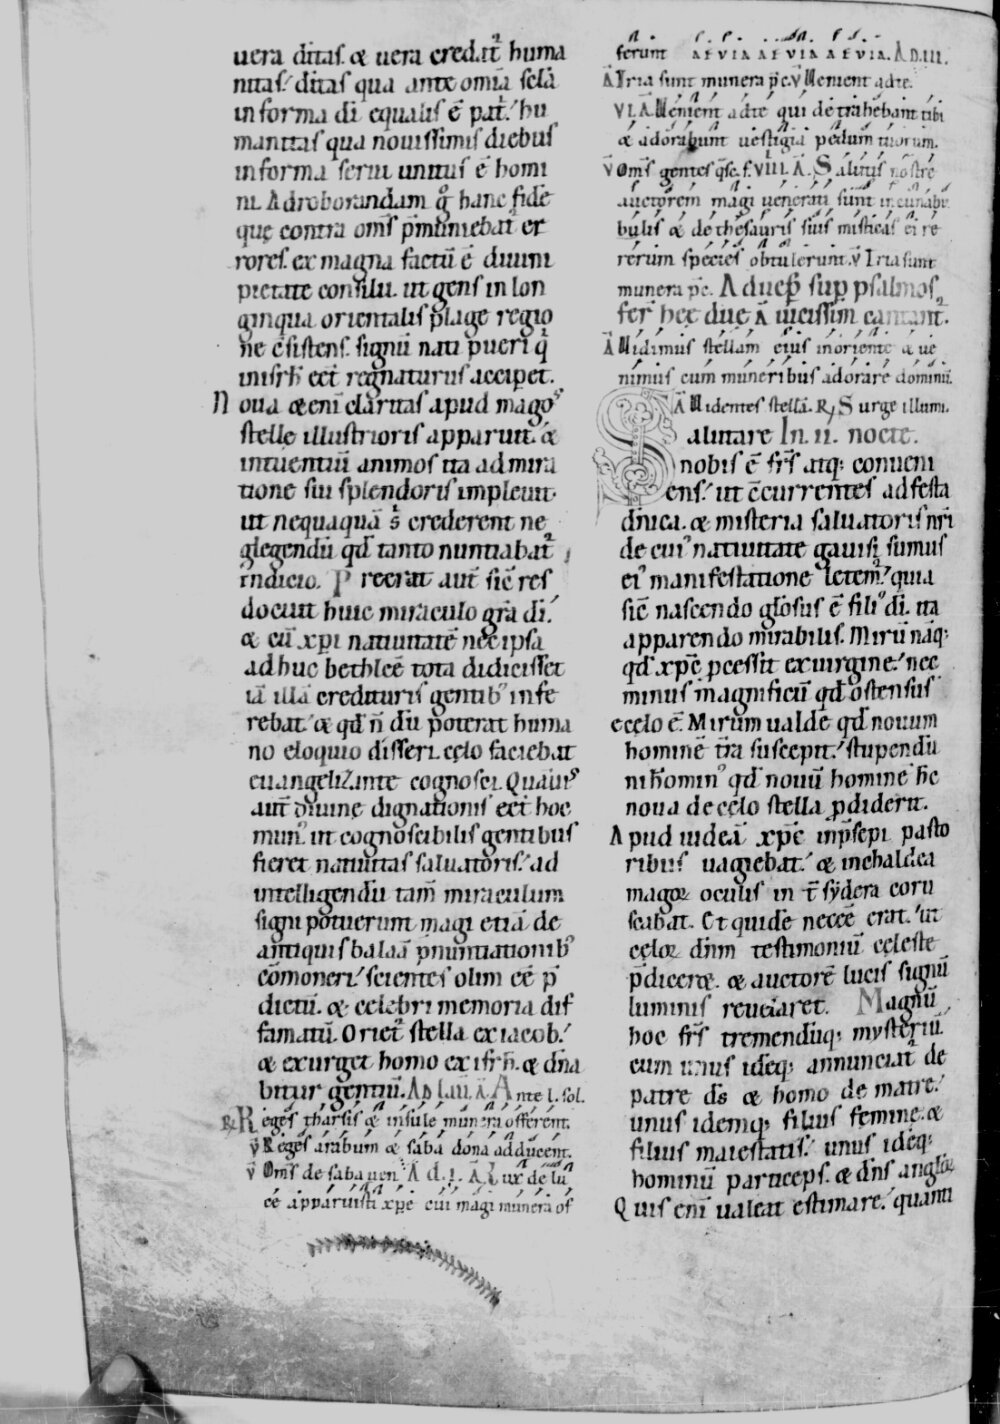 uera ditas. & uera credat᷑ huma
nitas.' ditas qua ante omīa scła
in forma dī equalis ē pat.' hu
manitas qua nouissimis diebus
in forma serui unitus ē homi
ni. Ad roborandam g̊ hanc fidē
que contra oms p̄muniebat᷑ er
rores. ex magna factū ē diuini
pietate consilii. ut gens in lon
ginqua orientalis plage regio
ne c̄sistens. signū nati pueri q̇
in isrł eēt regnaturus acciperet.
Noua & enī claritas apud magos
stelle illustrioris apparuit. &
intuentiū animos ita admira
tione sui splendoris impleuit.
ut nequaquā s᷑ crederent ne
glegendū qd̄ tanto nuntiabat᷑
indicio. Preerat aut̄ sic̄ res
docuit huic miraculo gr̄a dī.'
& cū xp̄i natiuitatē nec ipsa
adhuc bethleē tota didicisset
iā illā credituris gentib; infe
rebat.' & qd̄ n̄ dū poterat huma
no eloquio disseri. cęlo faciebat
euangelizante cognosci. Quāuis
aut̄ diuine dignationis eēt hoc
mun᷒ ut cognoscibilis gentibus
fieret natiuitas saluatoris.' ad
intelligendū tam̄ miraculum
signi potuerunt magi etiā de
antiquis balaā p̄nuntiationib;
cōmoneri.' scientes olim eē p̄
dictū. & celebri memoria dif
famatū. Oriet᷑ stella ex iacob.'
& exurget homo ex isrł. & dn̄a
bitur gentiū. Ad lau. ā. Ante l. sol.
℟ Reges tharsis & insule munera offerent.
℣ Reges arabum & saba dona adducent.
℣ Oms de saba uen̄. Ā d. i. Ā. Lux de lu
ce apparuisti xp̄e cui magi munera of
ferunt AEVIA AEVIA AEVIA. A D. III.
Ā Tria sunt munera p̄c. ℣ Venient ad te.
VI. Ā. Venient ad te qui detrahebant tibi
& adorabunt uestigia pedum tuorum.
℣ Oms gentes q̄sc. f. VIII. Ā. Salutis nostre
auctorem magi uenerati sunt in cunabu
bulis & de thesauris suis misticas ei re
rerum species obtulerunt. ℣ Tria sunt
munera p̄c. A duep̄ sup psalmos
fer̄ hec due ā uicissim cantant᷑.
Ā Vidimus stellam eius in oriente & ue
nimus cum muneribus adorare dominū.
Ā Videntes stellā. ℟ Surge illumi.
Salutare In. ii. nocte.
nobis ē fr̄s atq; conueni
ens.' ut c̄currentes ad festa
dn̄ica. & misteria saluatoris nr̄i
de cui᷒ natiuitate gauisi sumus
ei᷒ manifestatione letem᷑.' quia
sic̄ nascendo głosus ē fili᷒ dī. ita
apparendo mirabilis. Mirū nāq;
qd̄ xp̄c pcessit ex uirgine.' nec
minus magnificū qd̄ ostensus
e cęlo ē. Mirum ualde qd̄ nouum
hominē tr̄a suscepit.' stupendū
nihomin᷒ qd̄ nouū hominē hc̄
noua de cęlo stella pdiderit.
Apud iudeā xp̄c in psepi pasto
ribus uagiebat.' & in chaldea
magoꝝ oculis in t̄ sydera coru
scabat. Et quidē necēē erat.' ut
cęloꝝ dn̄m testimoniū cęleste
p̄diceret. & auctorē lucis signū
luminis reuelaret. Magnū
hoc fr̄s tremendūq; mysteriū.
cum unus idēq; annunciat᷑ de
patre ds̄ & homo de matre.'
unus idemq; filius femine. &
filius maiestatis.' unus idēq;
hominū particeps. & dn̄s angłoꝝ
Quis enī ualeat estimare.' quanti